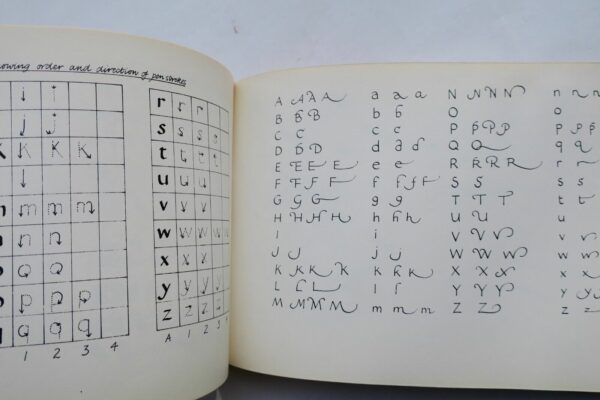 owing order and direction of pen strokes
i
j j
K K K K
m m m m
n n n
o o o
p p p p
q q q q
1 2 3 4
r r r
s s s s
t t t t
u u u
v v v
w w w w
x x x
y y y y
z z z z
A 1 2 3 4
A A A A a a a N N N N n n
B B B b b O o
C C c c P P P P p p p
D D D d d d Q Q q q
E E E E e e R R R R r r
F F F F f f f f S S s s
G G G g g T T T t t
H H H H h h h U U u
I i V V V v v
J J j j W W W w w
K K K K k k k X X X x x
L L L l l Y Y Y y y
M M M M m m m Z Z z z